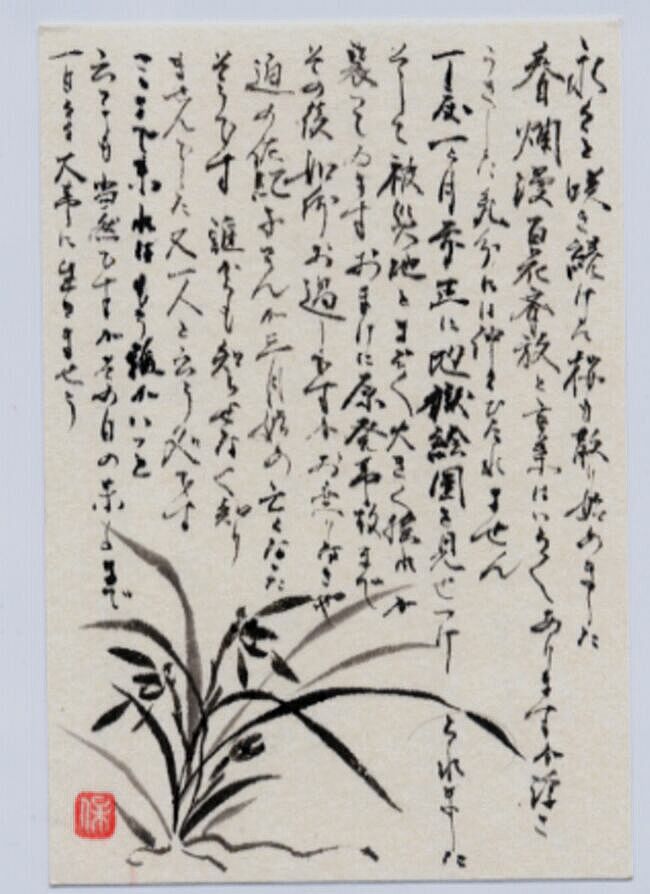 永々と咲き続けた桜も散り始めました
春爛漫百花斉放と言葉はいろいろありますが浮き
うきした気分には仲々ひたれません
丁度一ヶ月前正に地獄絵図を見せつけられました
そして被災地とまぢく大きく揺れが
襲ってゐます おまけに原発事故まで
その後如何お過しですか お変りなきや
迫の佐紀子さんが三月始め亡くなった
そうです 誰からも知らせなく知り
ませんでした 又一人と云う処です
ここまで来ればもう誰がいつと
云っても当然ですがその日の来るまで
一日々々大事に生きませう
保